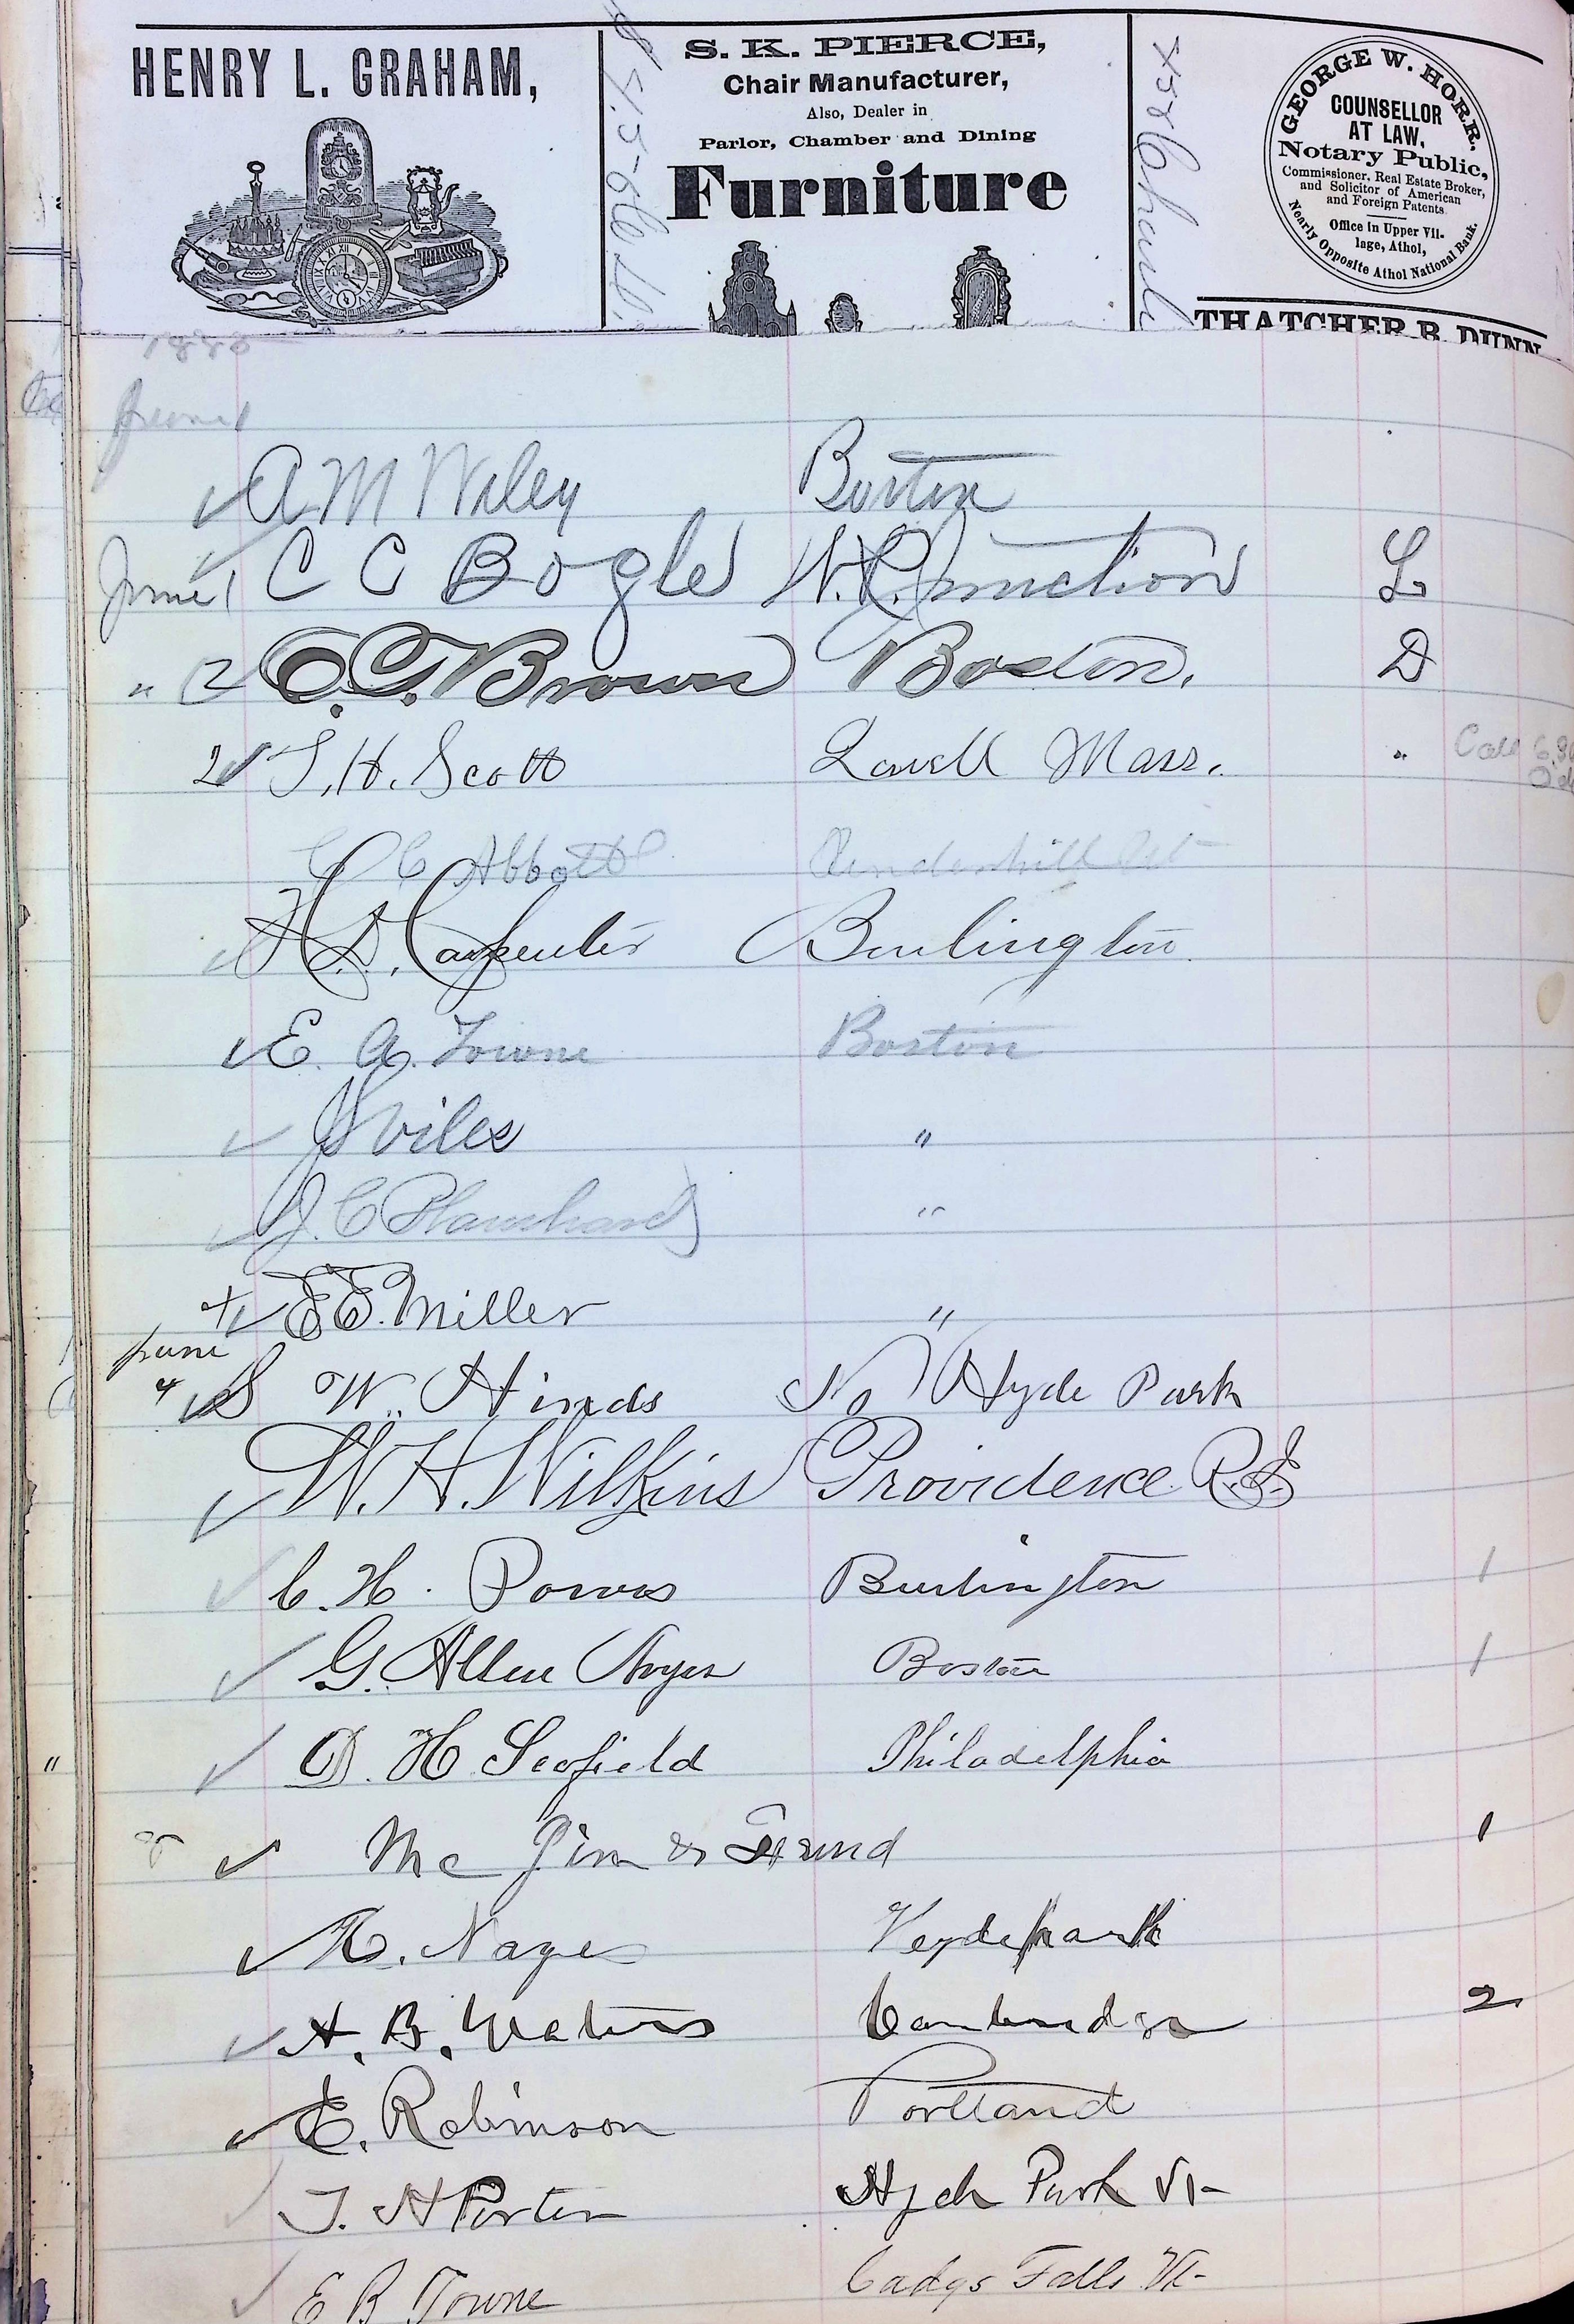 HENRY L. GRAHAM,
S. K. PIERCE,
Chair Manufacturer,
Also, Dealer in
Parlor, Chamber and Dining
Furniture
GEORGE W. HORR.
COUNSELLOR
AT LAW,
Notary Public,
Commissioner, Real Estate Broker,
and Solicitor of American
and Foreign Patents
Office in Upper Vil-
lage, Athol,
Nearly Opposite Athol National Bank.
THATCHER B. DUNN
1880
June 1
A M Wiley Boston
June 1 C C Bogle W. R. Junction L
" 2 C. G. Brown Boston. D
2 T. H. Scott Lowell Mass. " Call 6.30
C C Abbott Underhill Vt
H. D. Carpenter Burlington
E. A. Towne Boston
J S Viles "
J. C Blanchard "
E E. Miller "
June
4 S W. Hinds No Hyde Park
W. H. Wilkins Providence R.I.
C. H. Powers Burlington 1
G. Allen Noyes Boston 1
" D. H Scofield Philadelphia
Mc Jim & Frend 1
M. Noyes Heydepark
A. B. Waters Cambridge 2
E. Robinson Portland
T. H Porter Hyde Park Vt
E B Towne Cadys Falls Vt